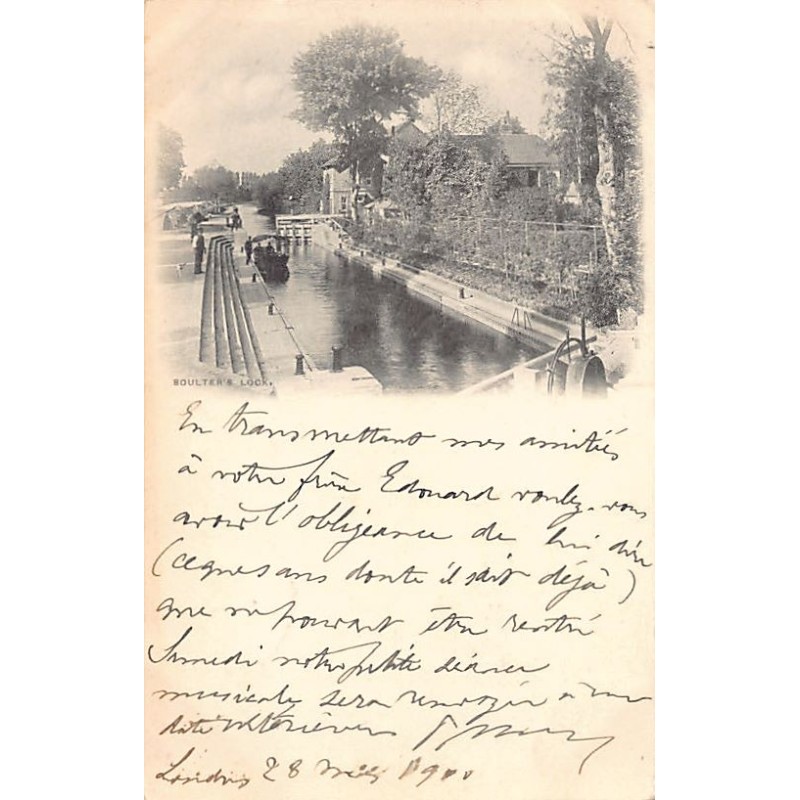 BOULTER'S LOCK.
En transmettant mes amitiés
à votre frère Edouard voulez-vous
avoir l'obligeance de lui dire
(ce que sans doute il sait déjà)
que ne pouvant être rentré
Samedi notre petite séance
musicale sera renvoyée à une
date ultérieure
Londres 28 1900